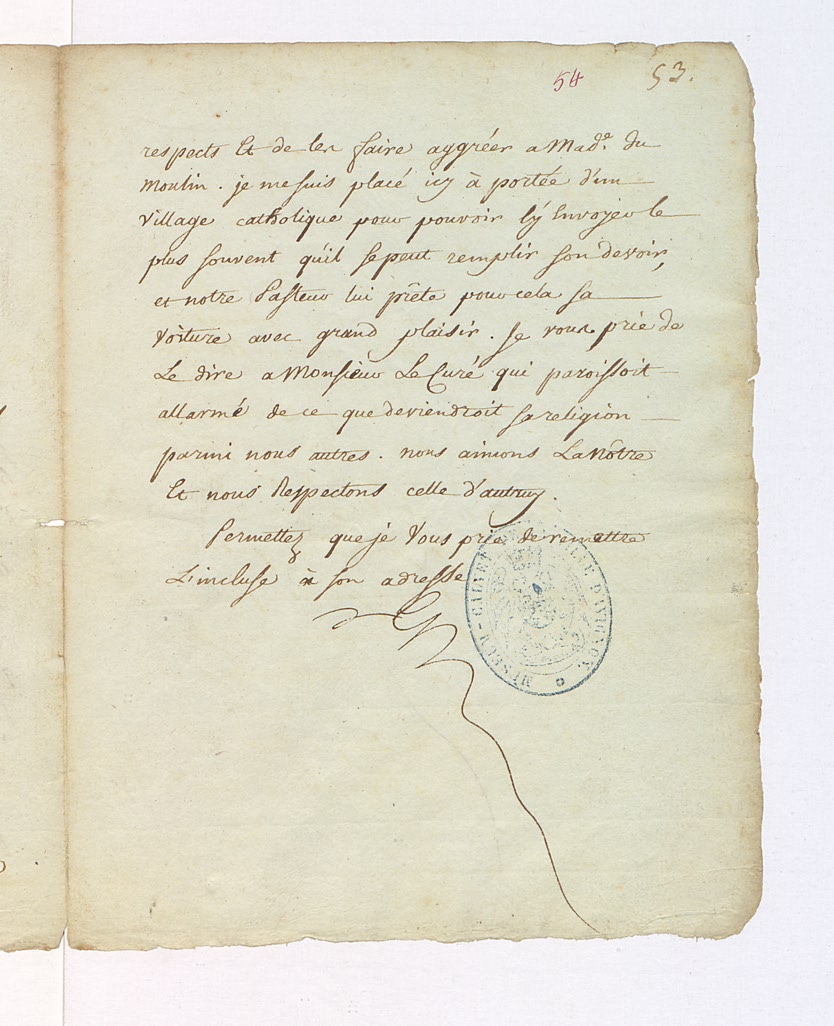 54 53.
respects Et de les faire aggréer a Mad.e du
moulin. je me suis placé icy à portée d'un
village catholique pour pouvoir l'y Envoyer le
plus souvent qu'il se peut remplir son devoir,
et notre Pasteur lui prête pour cela sa
Voiture avec grand plaisir. Je vous prie de
Le dire a Monsieur Le Curé qui paroissoit
allarmé de ce que deviendroit sa religion
parmi nous autres. nous aimons La Nôtre
Et nous Respectons celle d'autruy.
Permettez que je Vous prie de remettre
L'incluse à son adresse
MUSEUM-CALVET VILLE D'AVIGNON.